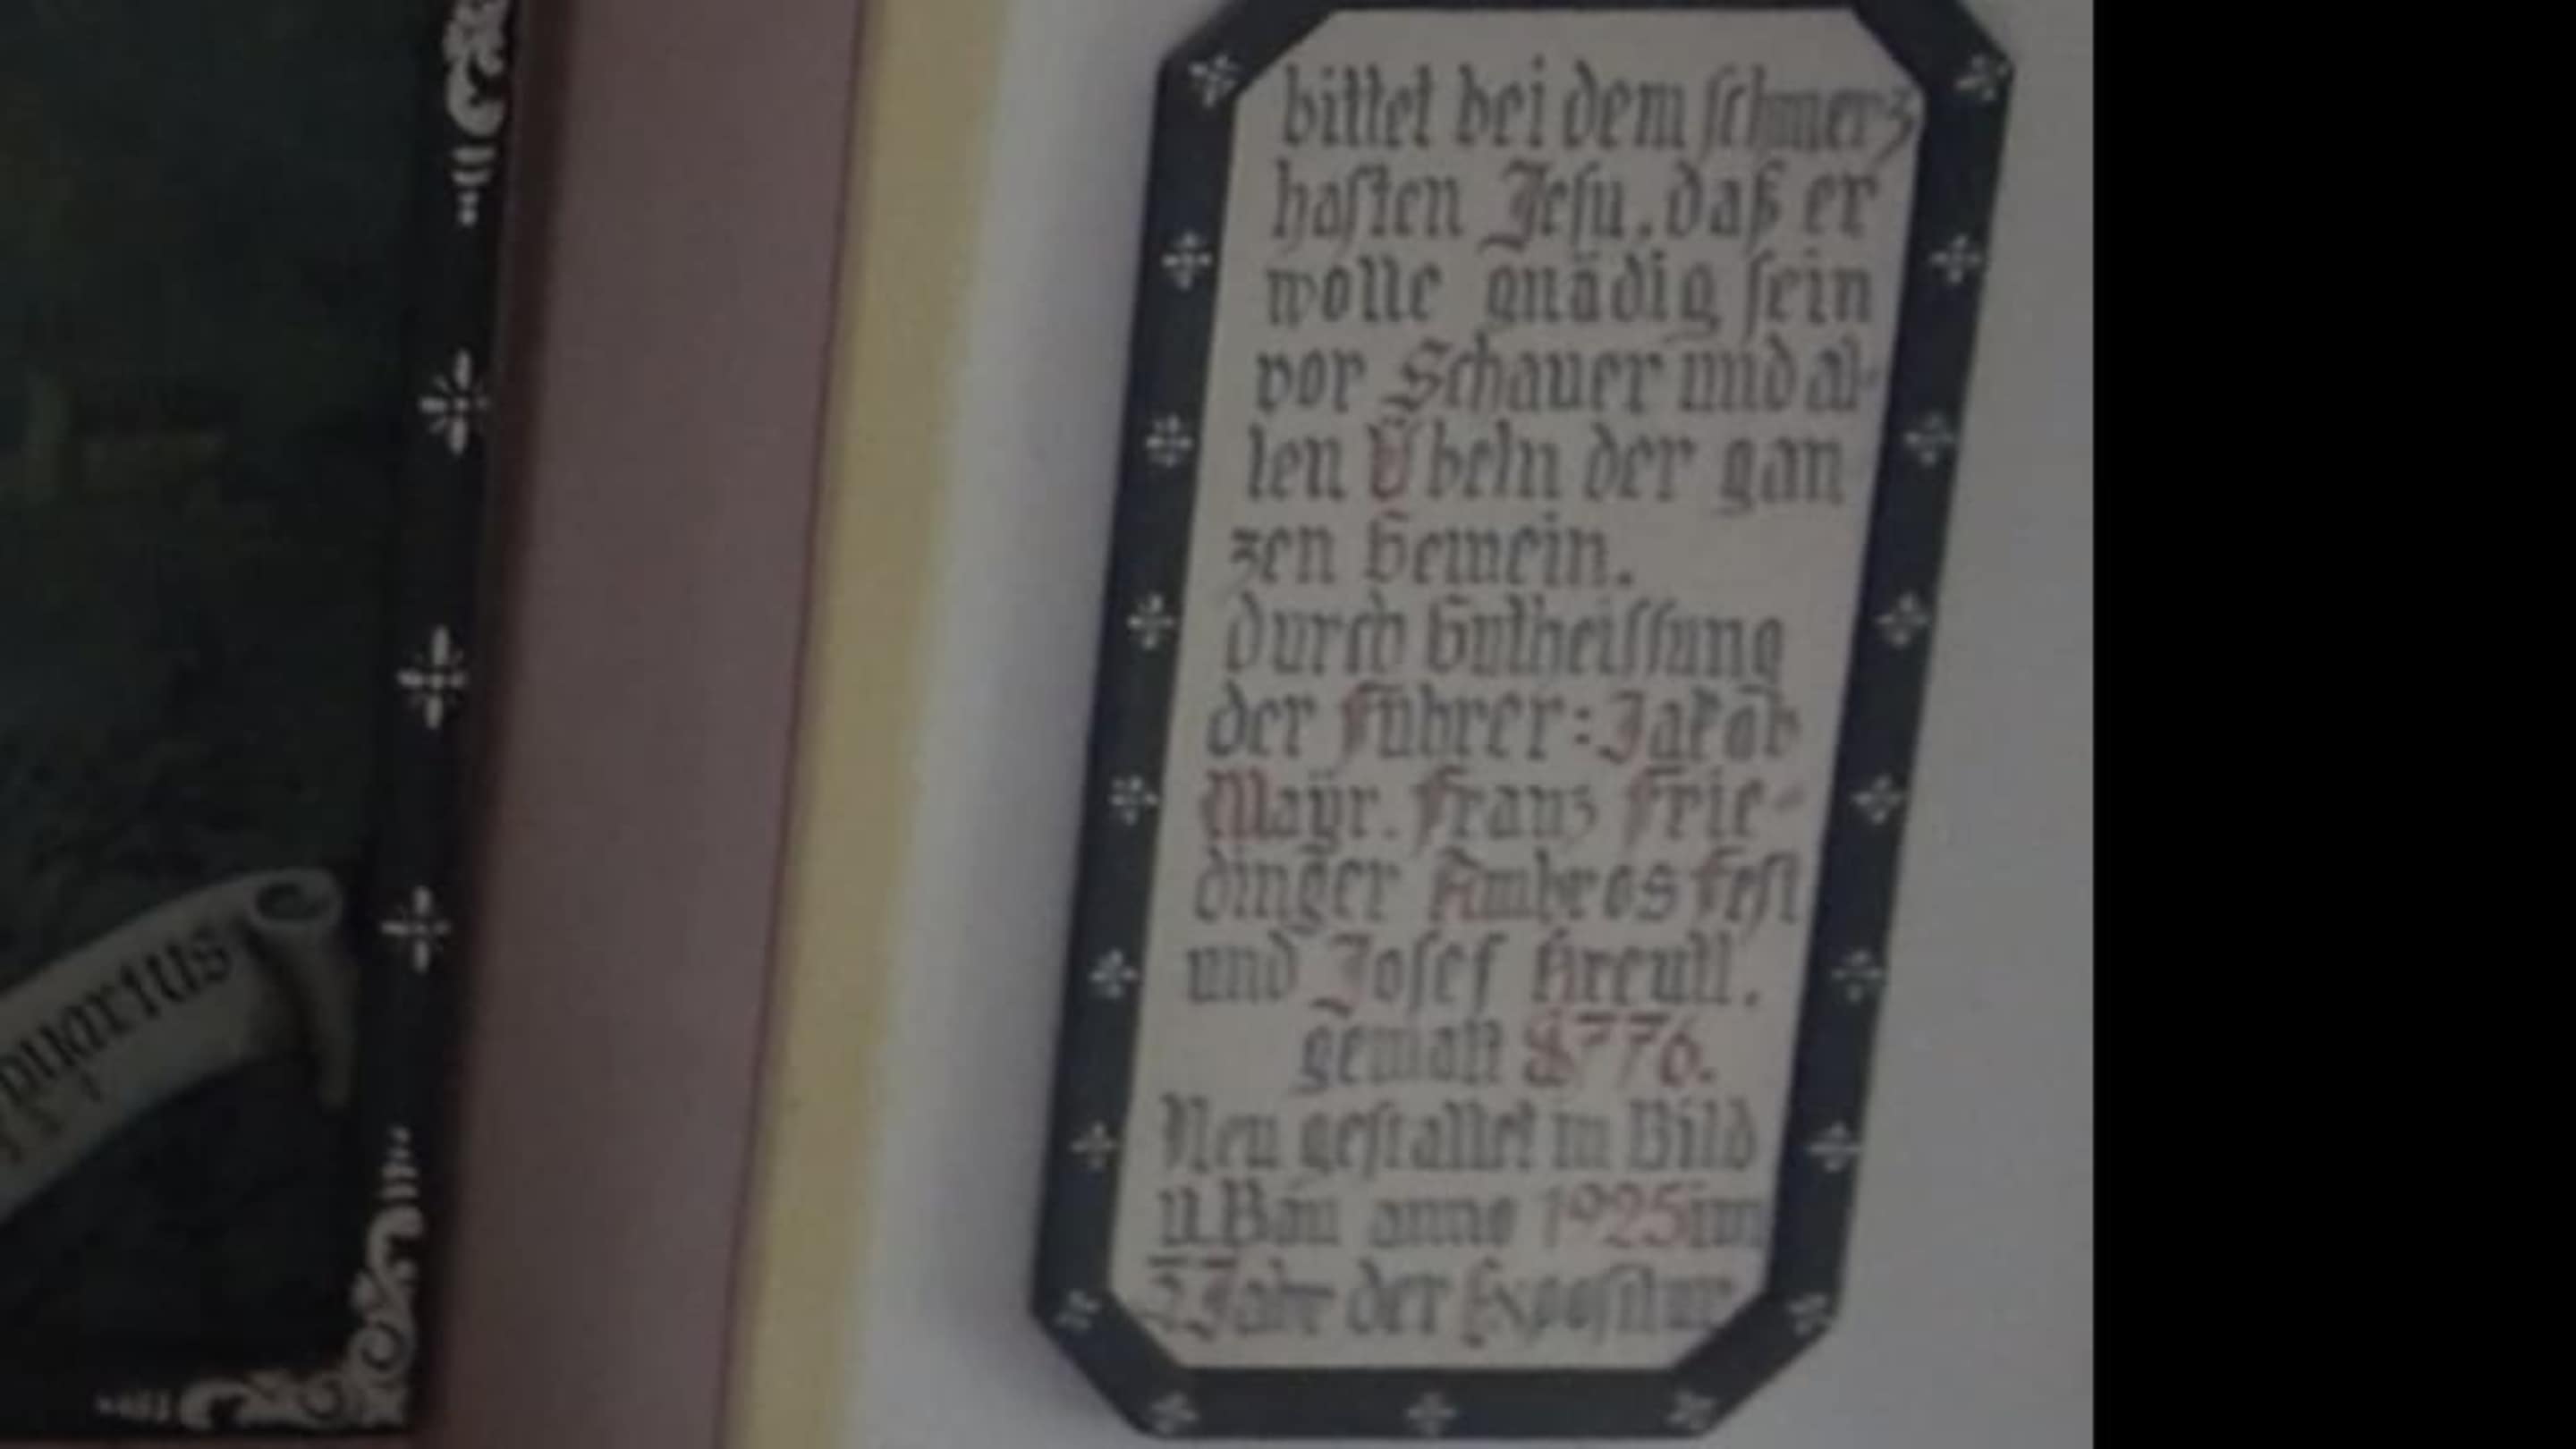 bittet bei dem schmerz
haften Jesu, daß er
wolle gnädig sein
vor Schauer und al-
len Übeln der gan
zen Gemein.
durch Gutheissung
der Führer: Jakob
Maÿr. Franz Frie-
dinger Ambros Fest
und Josef Kreutl.
gemalt 1776.
Neu gestaltet in Bild
u. Bau anno 1925 im
2 Jahr der Expositur